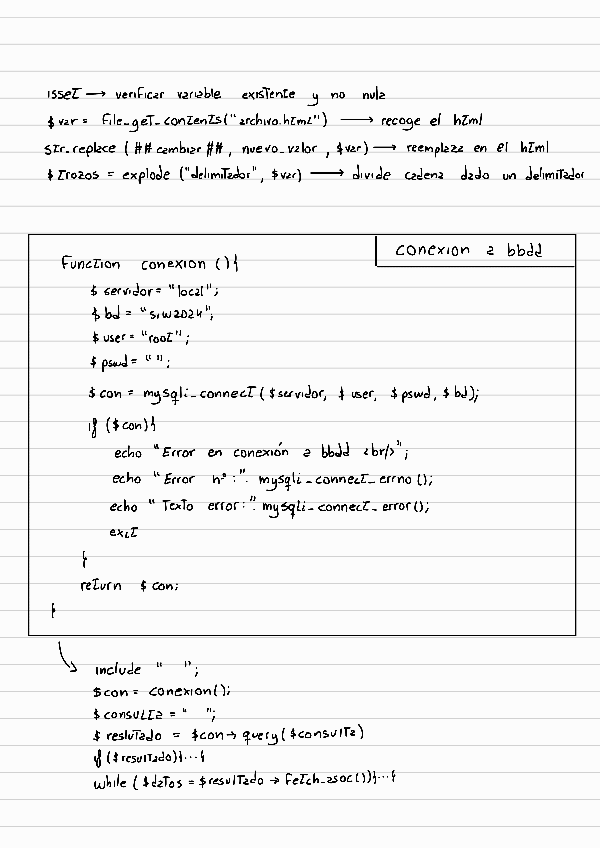 isset → verificar variable existente y no nula
$var = file_get_contents("archivo.html") → recoge el html
str_replace (##cambiar##, nuevo_valor, $var) → reemplaza en el html
$trozos = explode ("delimitador", $var) → divide cadena dado un delimitador
conexion a bbdd
function conexion (){
$servidor = "local";
$bd = "siw2024";
$user = "root";
$pswd = "";
$con = mysqli_connect ($servidor, $user, $pswd, $bd);
if ($con){
echo "Error en conexión a bbdd <br/>";
echo "Error nº:". mysqli_connect_errno ();
echo "Texto error:". mysqli_connect_error();
exit
}
return $con;
}
include " ";
$con = conexion();
$consulta = " ";
$reslutado = $con→query($consulta)
if ($resultado){...{
while ($datos = $resultado → fetch_asoc()){...{